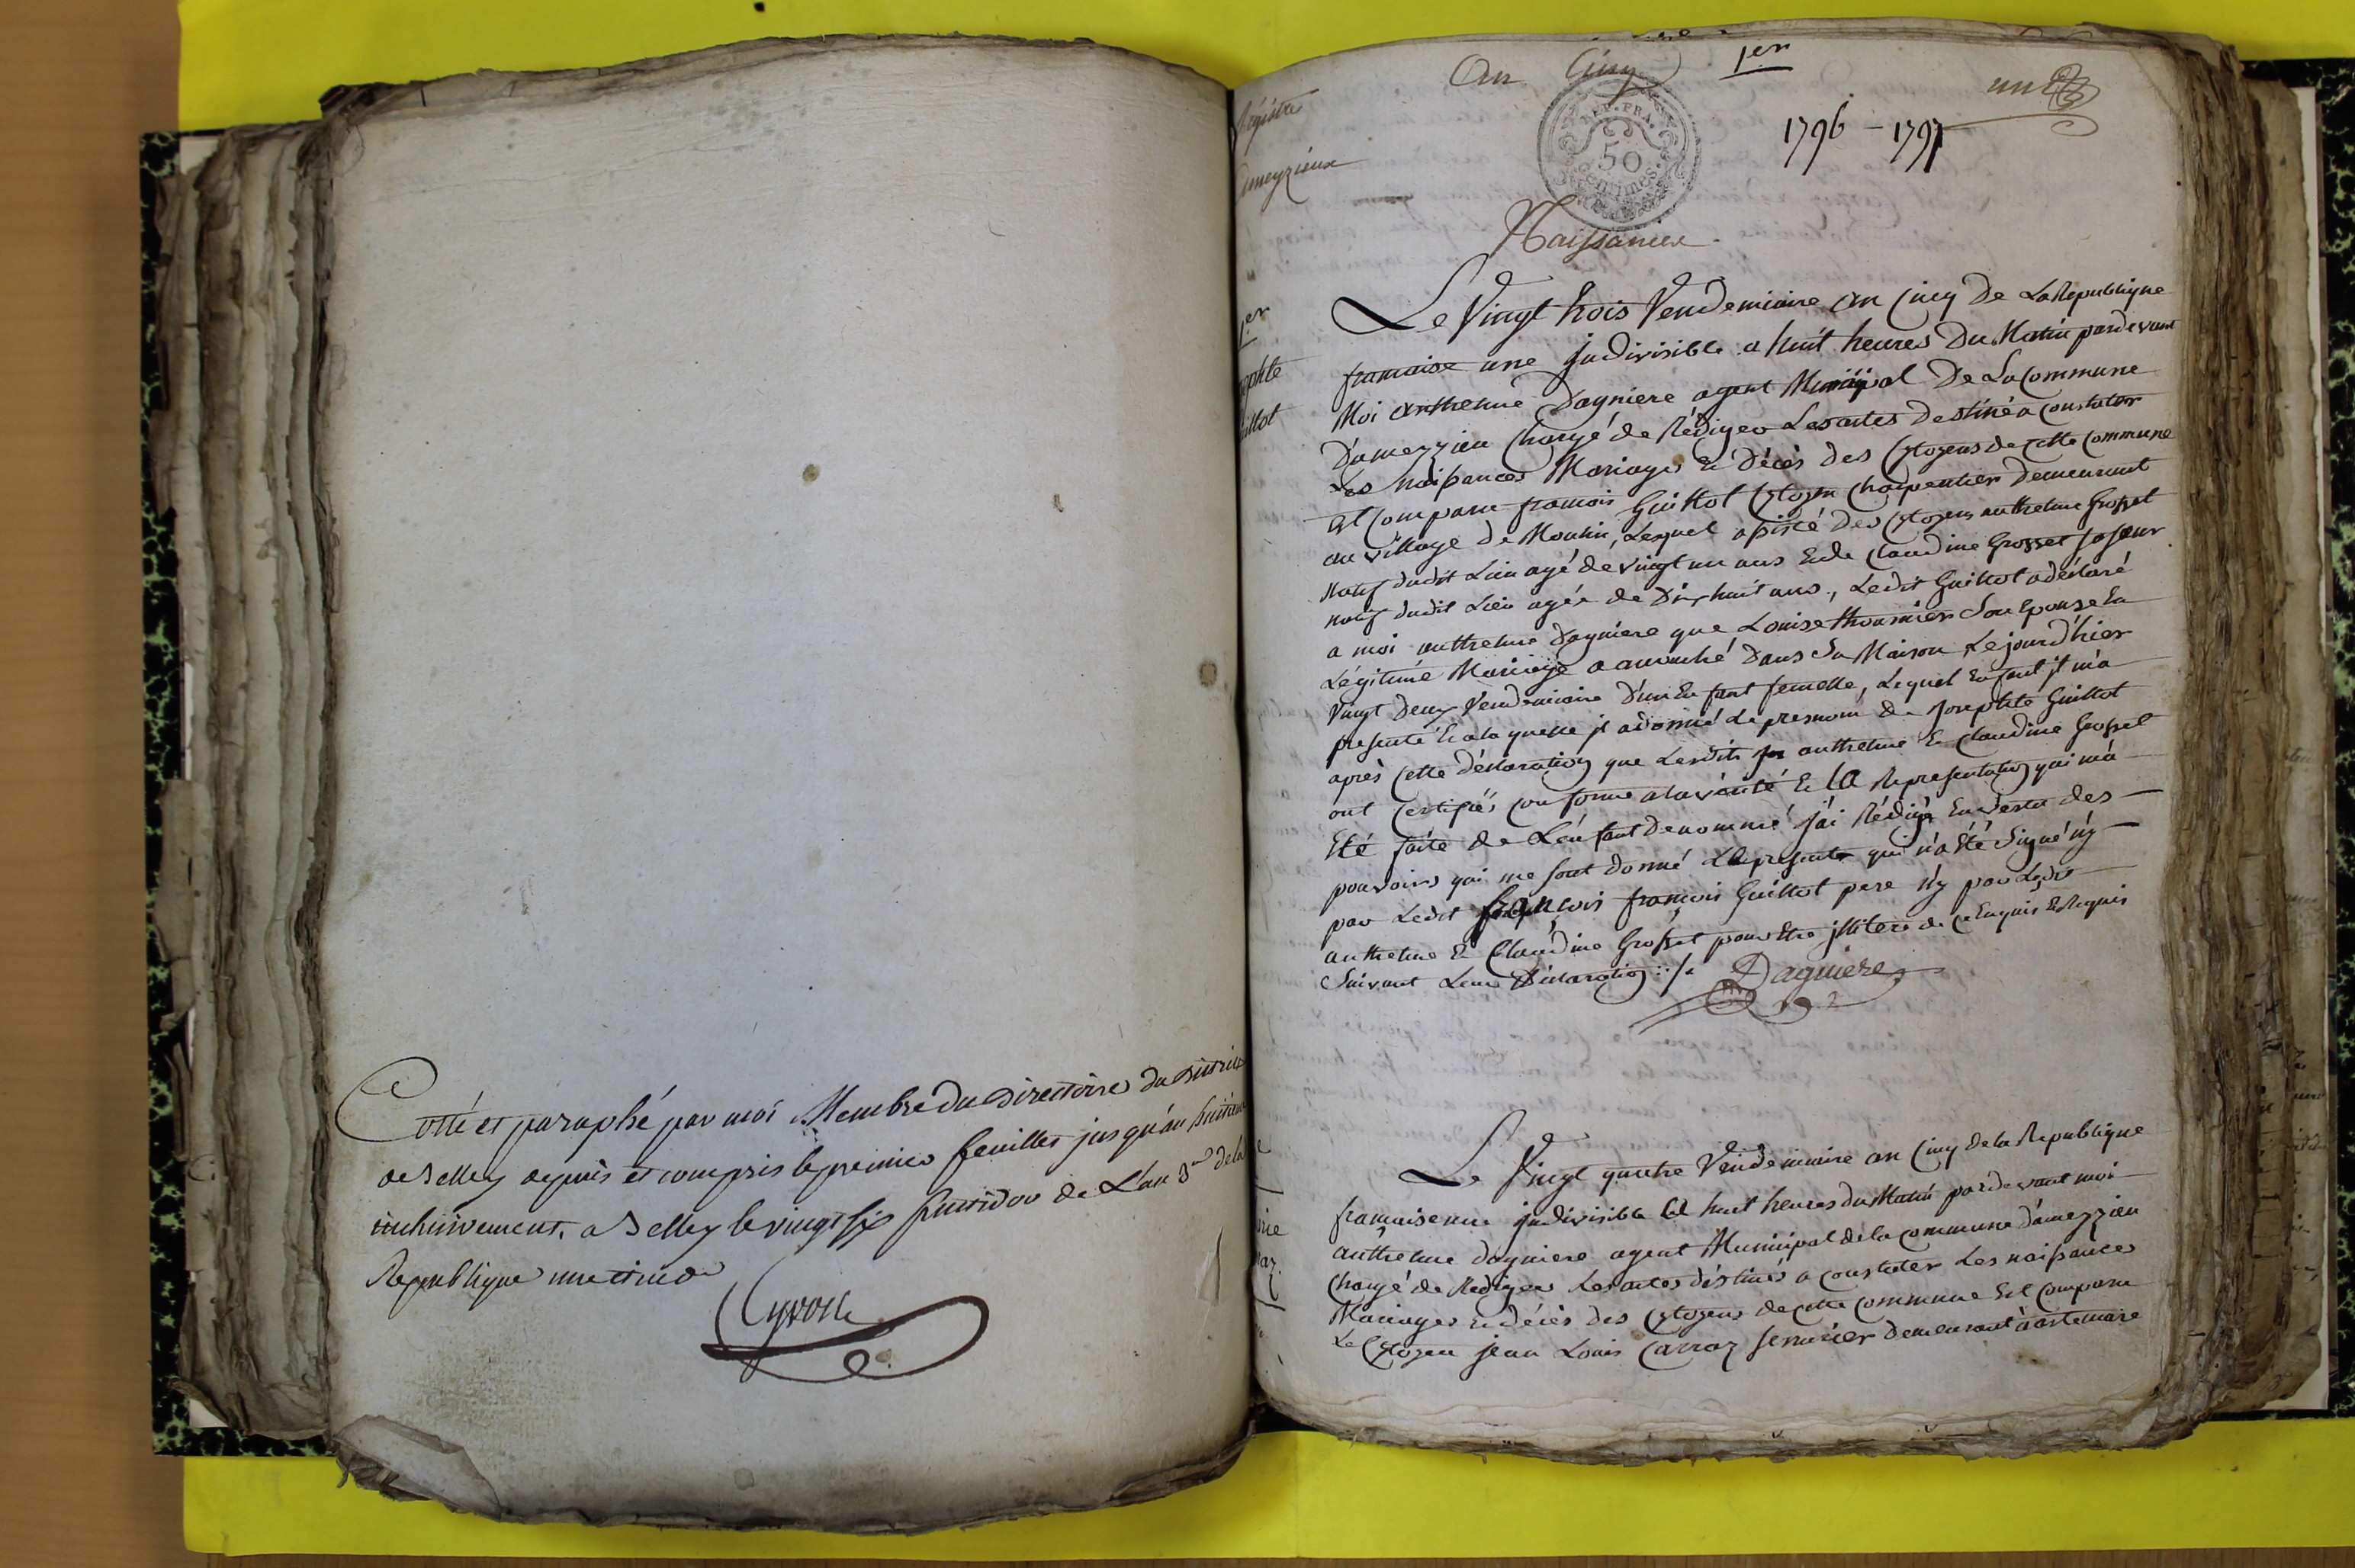 Cotté et paraphé par moi Membre du Directoire du District
de Belley depuis et compris le premier feuillet jusqu'au huitième
inclusivement. a Belley le vingt six fructidor de L'an 3me de la
Republique une et ind
Cyvoct
Régistre
ameyzieux
An Cinq
1er
un
REP. FRA.
50
centimes.
1796 - 1797
Naissances
1er
ephte
uillot
Le Vingt trois Vendemiaire an cinq De La Republique
francaise une jndivisible a huit heures Du Matin pardevant
Moi anthelme Dagniere agent Municipal De La Commune
D'ameyzieu Chargé de Rédiger Les actes Destiné a Constater
Les naissances Mariages et Décès des Cytoyens de cette Commune
est comparu francois Guillot Cytoyen Charpentier Demeurant
au village de Moulin, Lequel assisté des Cytoyens anthelme Grosset
natif dudit Lieu agé de vingt un ans et de Claudine Grosset sa soeur
natif dudit Lieu agée de Dix huit ans, Ledit Guillot a déclaré
a moi anthelme Dagniere que Louise thournier Son Epouse En
Légitime Mariage a accouché Dans Sa Maison Le jourd'hier
Vingt Deux Vendemiaire D'un Enfant femelle, Lequel Enfant jl m'a
presenté Et a la quelle jl a donné Le presnom de Josephte Guillot
après Cette Déclaration que Lesdits anthelme Et Claudine Grosset
ont Certifiés conforme a la vérité Et La Representation qui m'a
Eté faite de L'enfant denommé j'ai Rédigé En vertu des
pouvoirs qui me sont donné Le present qui n'a Eté Signé n'y
par Ledit françois francois Guillot pere n'y par Ledit
anthelme Et Claudine Grosset pour Etre jlliteré de ce Enquis Et Requis
Suivant Leur Déclaration ://. Dagniere
Le Vingt quatre Vendemiaire an Cinq de la Republique
francaise une jndivisible a huit heures du Matin pardevant moi
anthelme dagniere agent Municipal de la commune d'ameyzieu
Chargé de Rediger Les actes déstinés a Constater Les naissances
Mariages et décès des Cytoyens de cette commune Est comparu
Le Cytoyen jean Louis Carraz serrurier demeurant à artemare